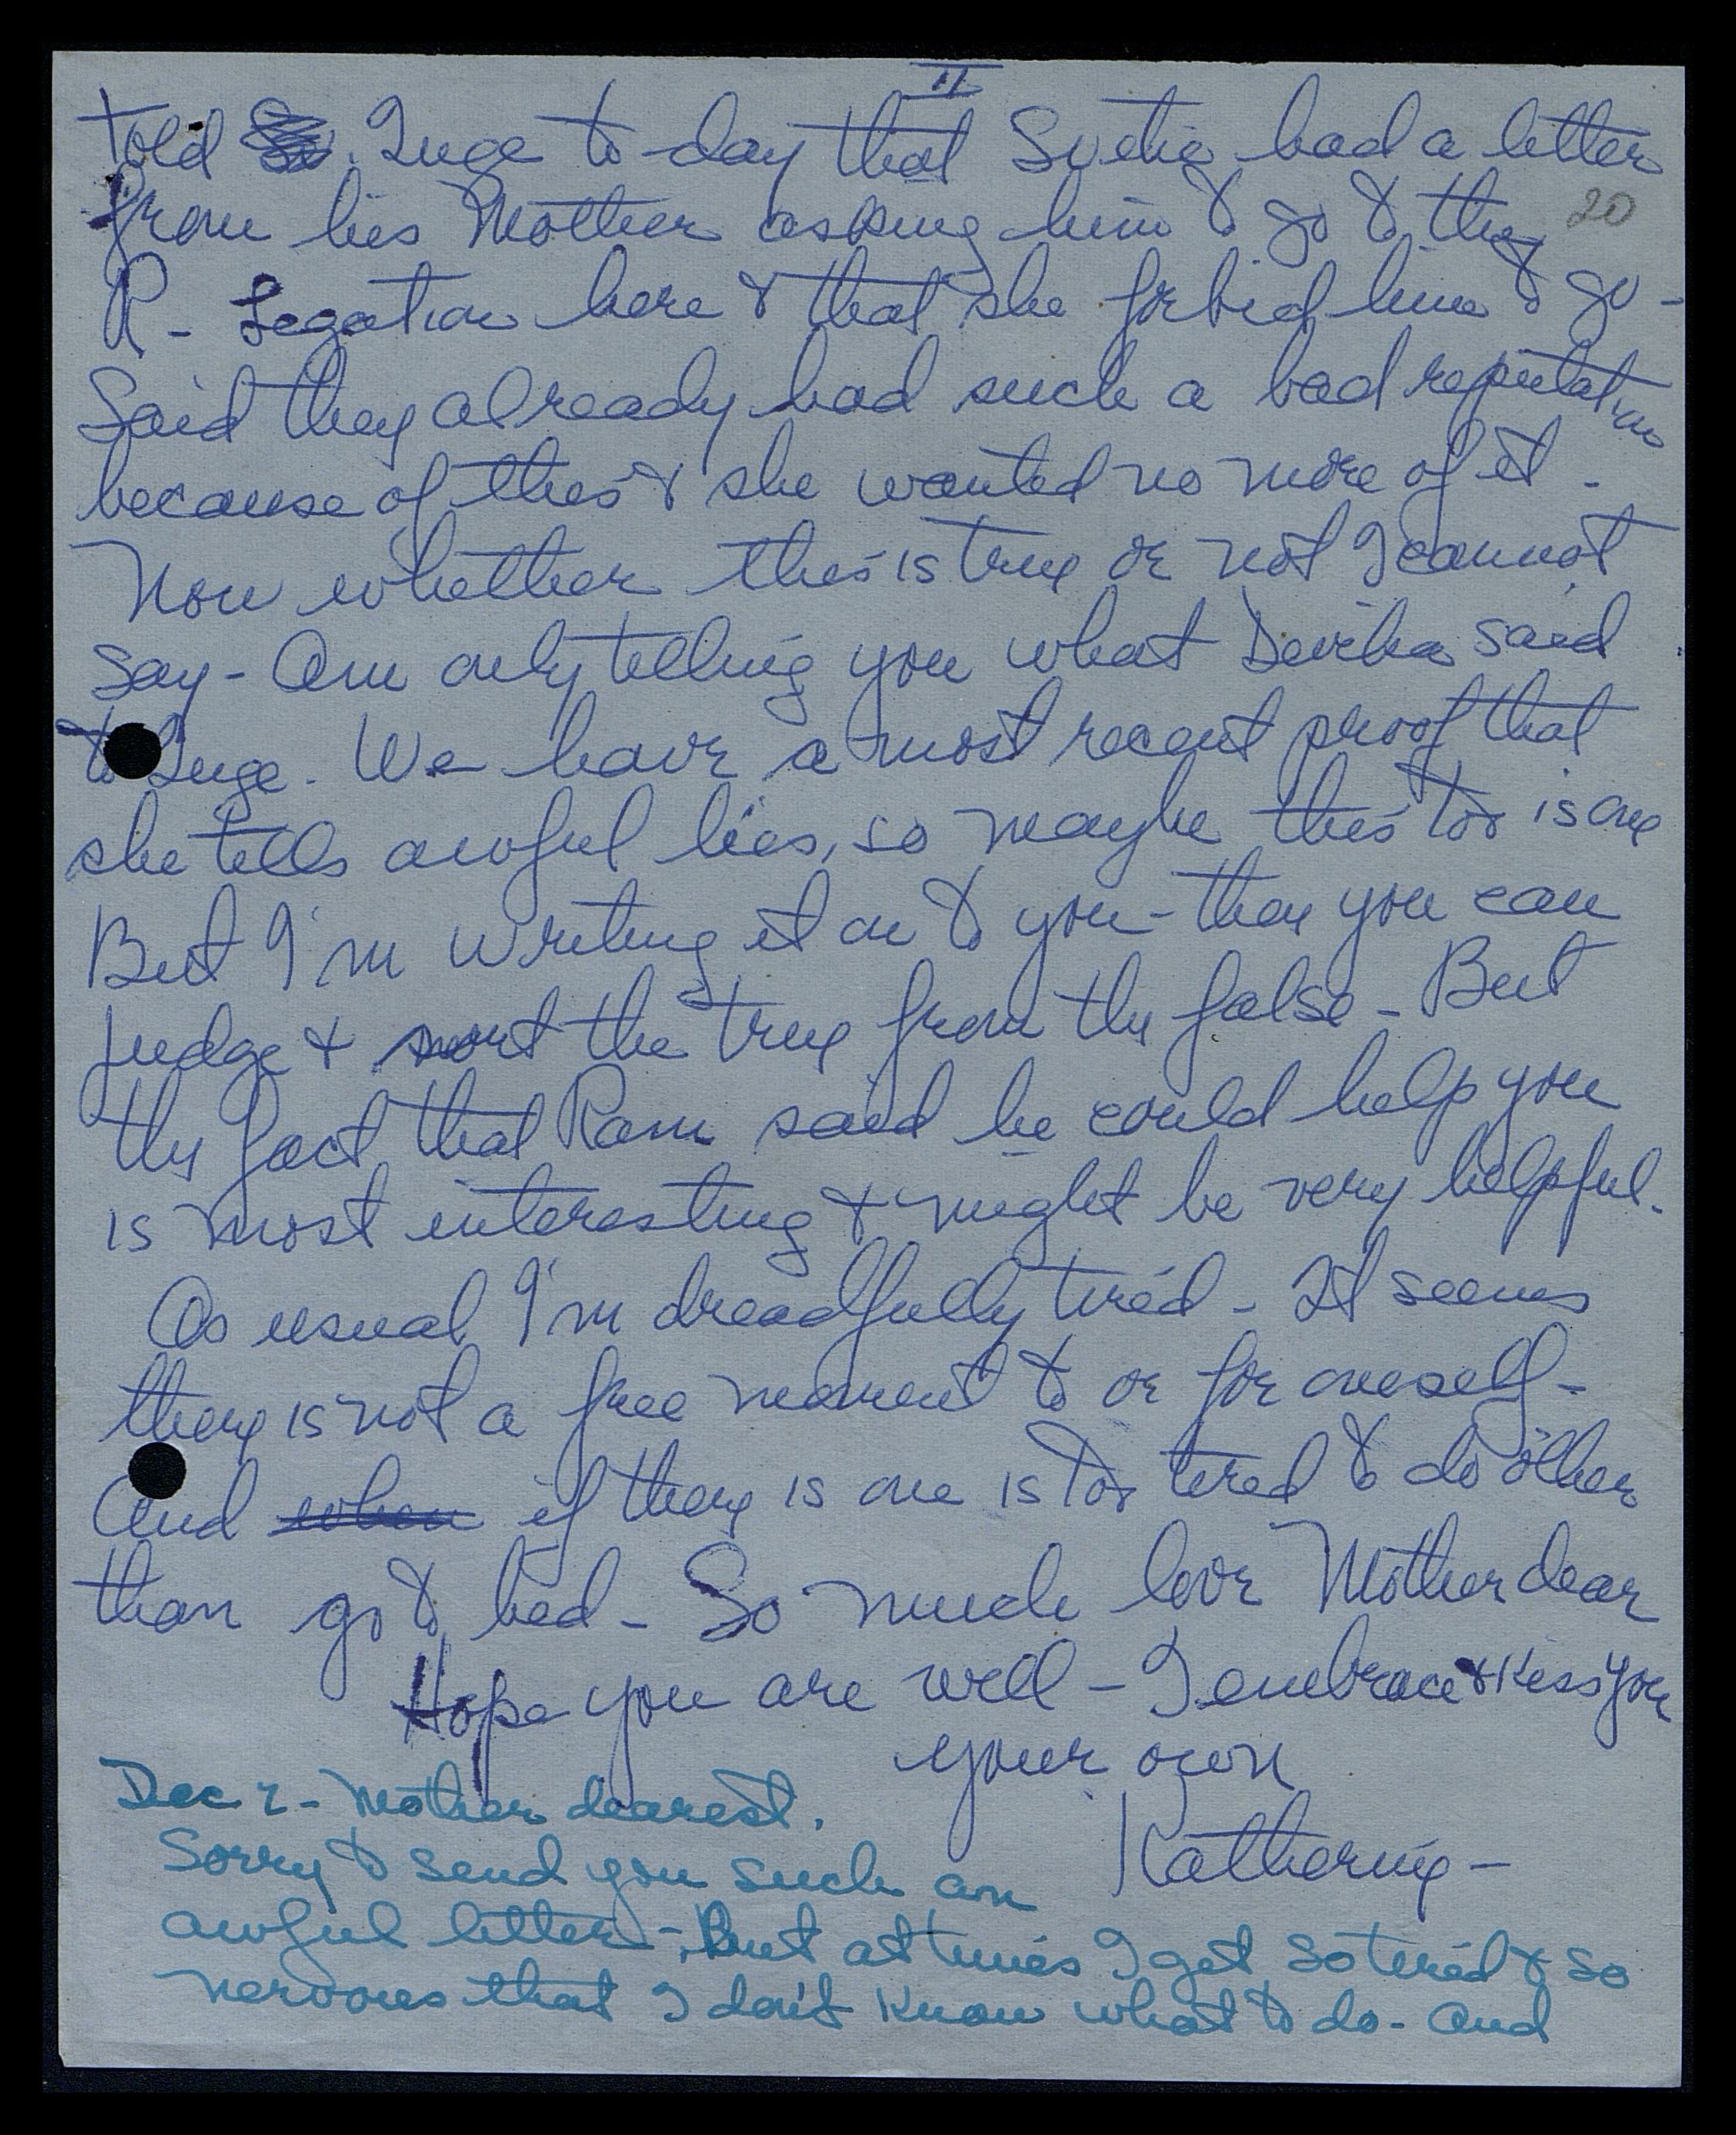 II
told Inge to day that Svetia had a letter
20
from his Mother asking him to go to the
R- Legation here & that she forbid him to go -
Said they already had such a bad reputation
because of this & she wanted no more of it -
Now whether this is true or not I cannot
say - Am only telling you what Devika said
to Inge. We have a most recent proof that
she tells awful lies, so maybe this too is one
But I'm writing it on to you - then you can
judge & sort the true from the false - But
the fact that Ram said he could help you
is most interesting & might be very helpful.
As usual I'm dreadfully tired - It seems
there is not a free moment to or for oneself -
And when if there is one is too tired to do other
than go to bed - So much love Mother dear
Hope you are well - I embrace & kiss you
your own
Katherine -
Dec 2 - Mother dearest,
Sorry to send you such an
awful letter -, But at times I get so tired & so
nervous that I don't know what to do - And